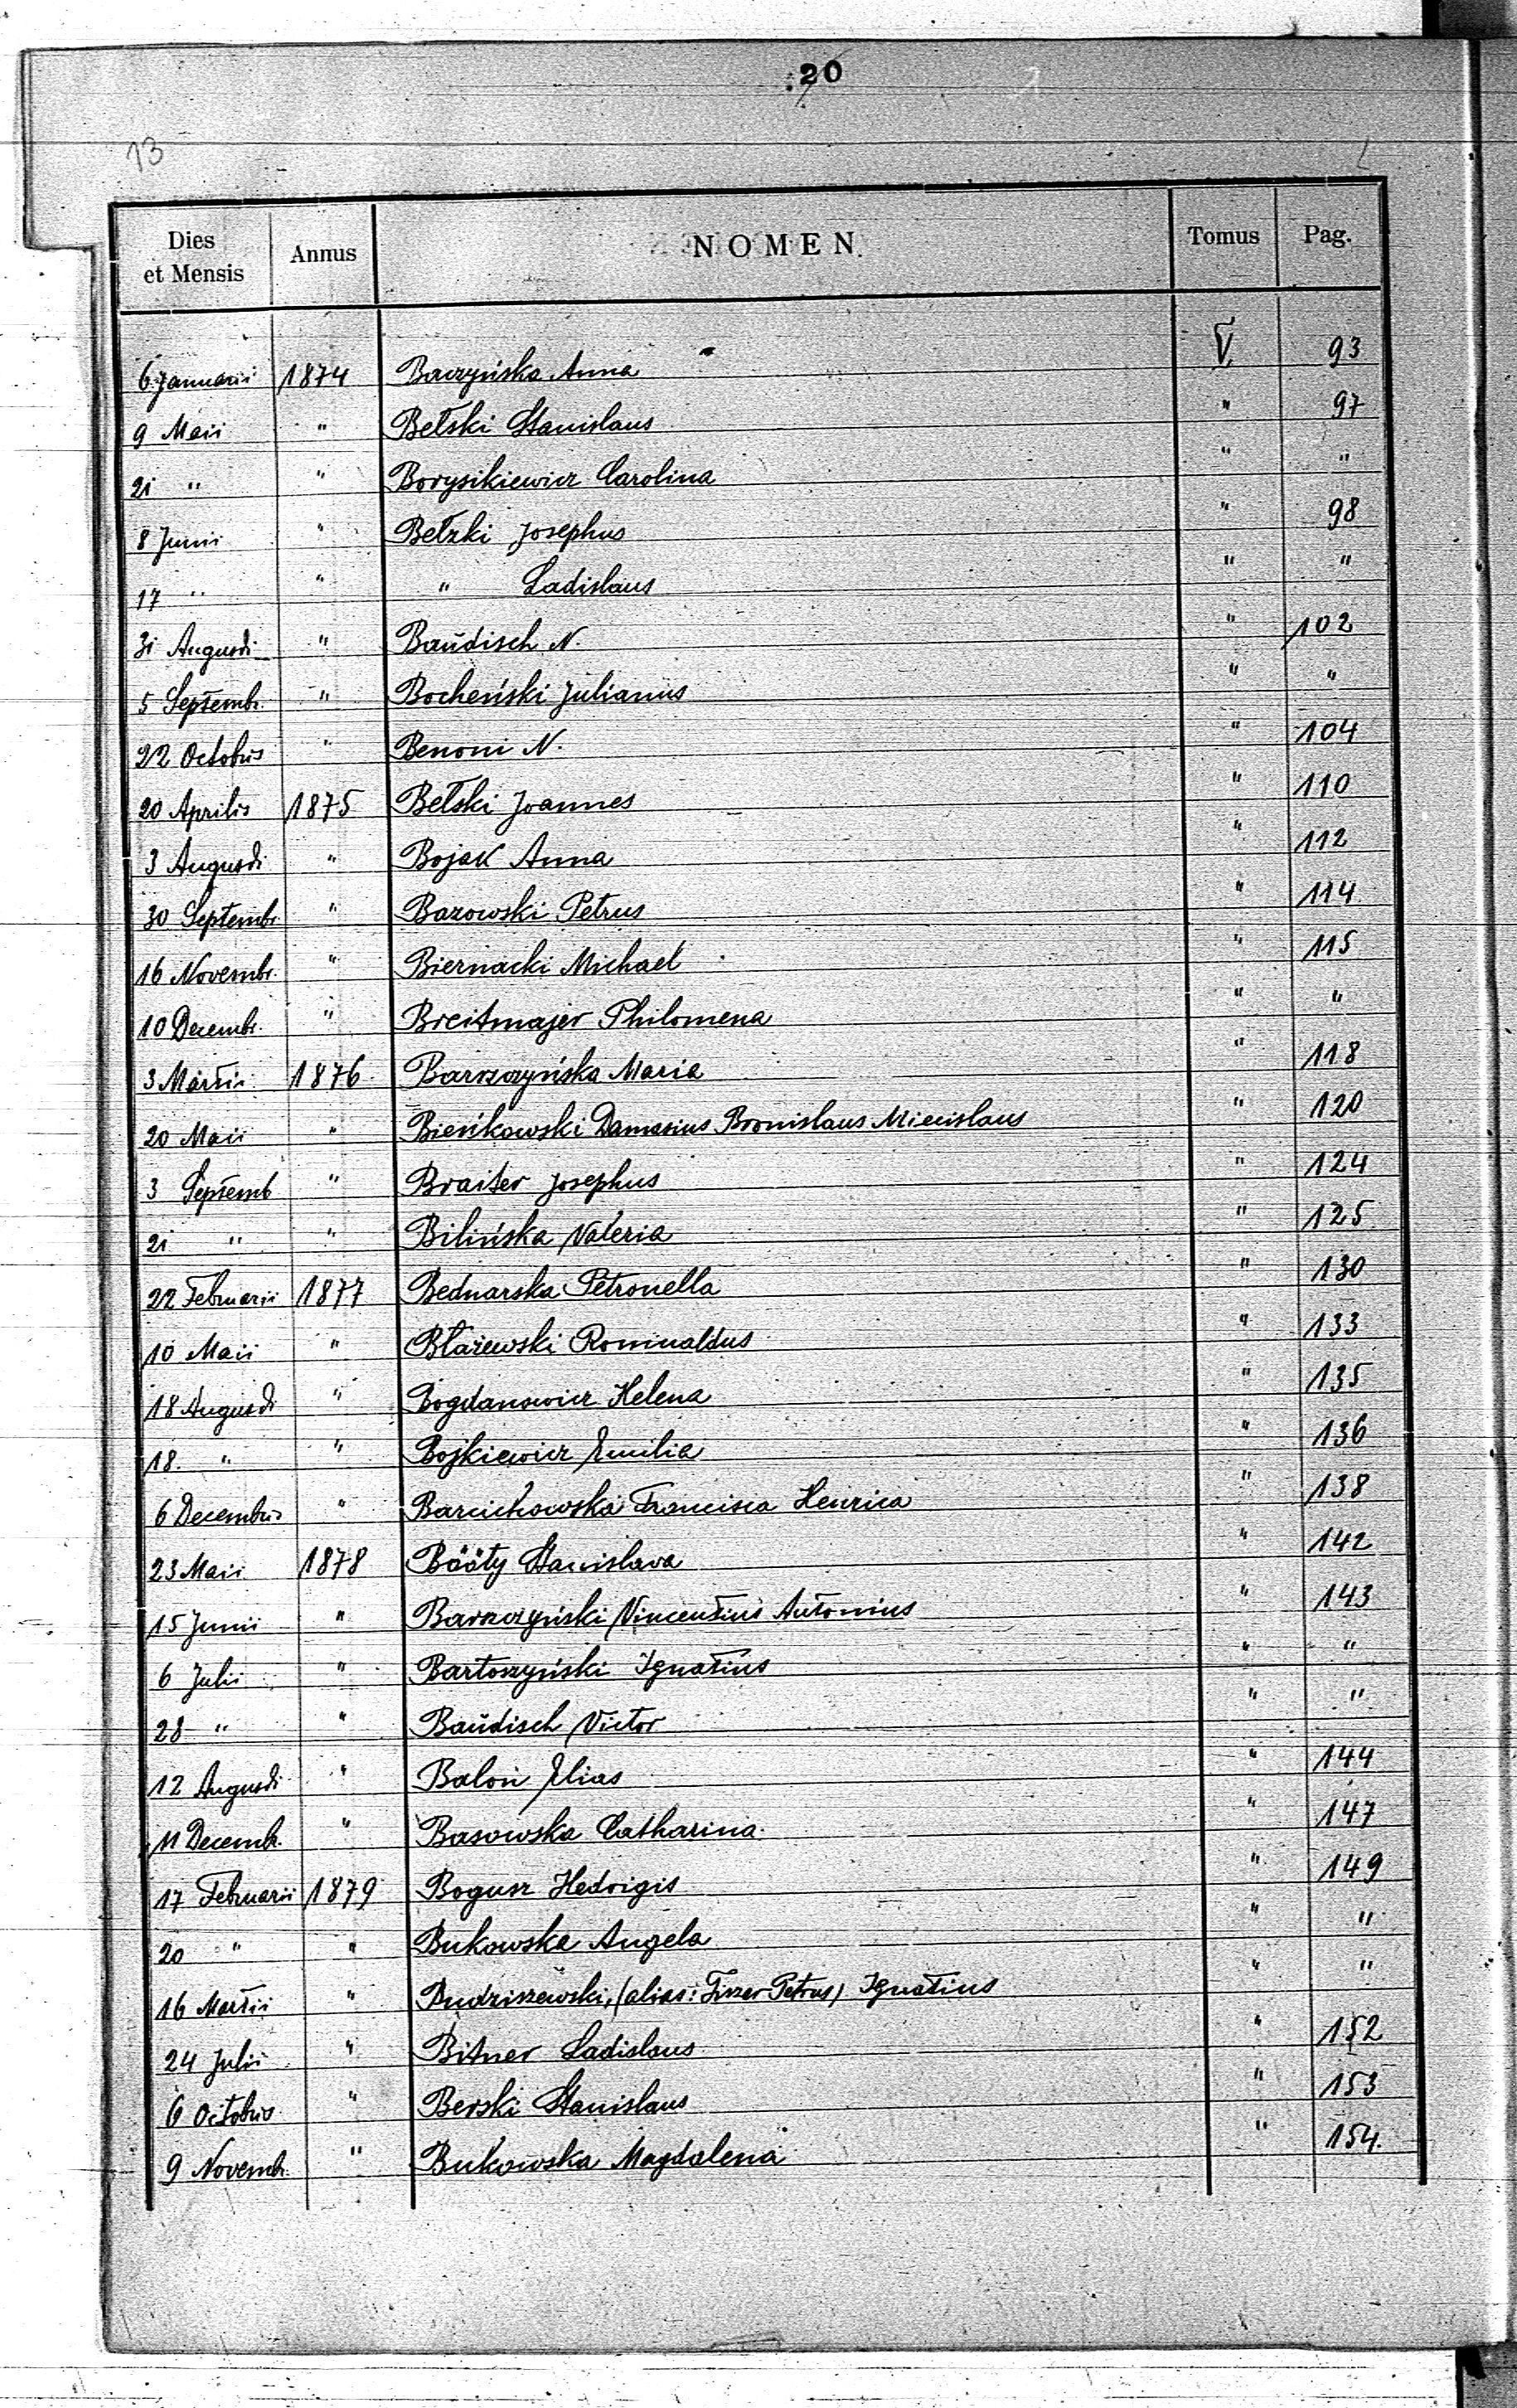 20
13
Dies et Mensis Annus NOMEN. Tomus Pag.
6 Januarii 1874 Baczyńska Anna V. 93
9 Maii " Bełski Stanislaus " 97
21 " " Borysikiewicz Carolina " "
8 Junii " Bełzki Josephus " 98
17 " " " Ladislaus " "
31 Augusti " Baŭdisch N. " 102
5 Septembr. " Bocheński Julianus " "
22 Octobris " Benoni N. " 104
20 Aprilis 1875 Bełski Joannes " 110
3 Augusti " Bojak Anna " 112
30 Septembr. " Bazowski Petrus " 114
16 Novembr. " Biernacki Michael " 115
10 Decembr. " Breitmajer Philomena " "
3 Martii 1876 Barszczyńska Maria " 118
20 Maii " Bieńkowski Damasius Bronislaus Miecislaus " 120
3 Septemb " Braiter Josephus " 124
21 " " Bilińska Valeria " 125
22 Februarii 1877 Bednarska Petronella " 130
10 Maii " Błażewski Romualdus " 133
18 Augusti " Bogdanowicz Helena " 135
18. " " Bojkiewicz Emilia " 136
6 Decembris " Barcichowska Francisca Henrica " 138
23 Maii 1878 Bööty Stanislava " 142
15 Junii " Barszczyński Vincentius Antonius " 143
6 Julii " Bartoszyński Ignatius " "
28 " " Baŭdisch Victor " "
12 Augusti " Baloń Elias " 144
11 Decembr. " Basowska Catharina " 147
17 Februarii 1879 Bogusz Hedvigis " 149
20 " " Bukowska Angela " "
16 Martii " Budziszewski, (alias: Fiszer Petrus) Ignatius " "
24 Julii " Bitner Ladislaus " 152
6 Octobris " Berski Stanislaus " 153
9 Novemb. " Bukowska Magdalena " 154.